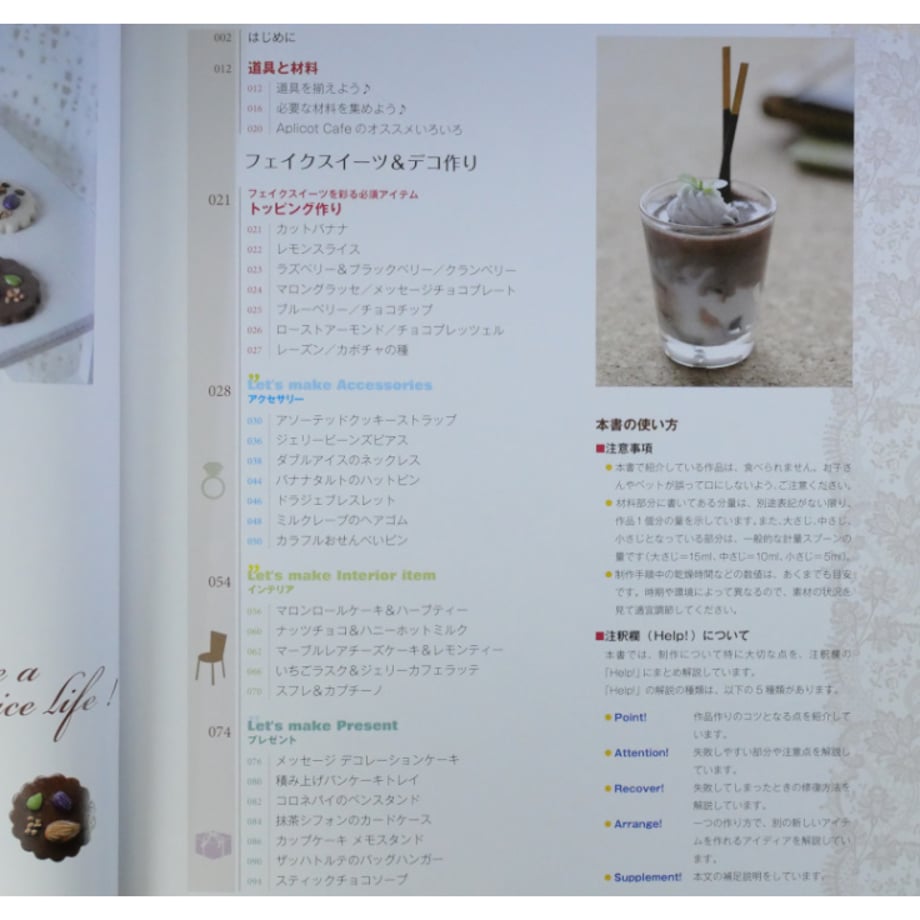 e a
ice life!
002 はじめに
012 道具と材料
012 道具を揃えよう♪
016 必要な材料を集めよう♪
020 Aplicot Cafe のオススメいろいろ
フェイクスイーツ＆デコ作り
021 フェイクスイーツを彩る必須アイテム
トッピング作り
021 カットバナナ
022 レモンスライス
023 ラズベリー＆ブラックベリー／クランベリー
024 マロングラッセ／メッセージチョコプレート
025 ブルーベリー／チョコチップ
026 ローストアーモンド／チョコプレッツェル
027 レーズン／カボチャの種
028 Let's make Accessories
アクセサリー
030 アソーテッドクッキーストラップ
036 ジェリービーンズピアス
038 ダブルアイスのネックレス
044 バナナタルトのハットピン
046 ドラジェブレスレット
048 ミルクレープのヘアゴム
050 カラフルおせんべいピン
054 Let's make Interior item
インテリア
056 マロンロールケーキ＆ハーブティー
060 ナッツチョコ＆ハニーホットミルク
062 マーブルレアチーズケーキ＆レモンティー
066 いちごラスク＆ジェリーカフェラッテ
070 スフレ＆カプチーノ
074 Let's make Present
プレゼント
076 メッセージ デコレーションケーキ
080 積み上げパンケーキトレイ
082 コロネパイのペンスタンド
084 抹茶シフォンのカードケース
086 カップケーキ メモスタンド
090 ザッハトルテのバッグハンガー
094 スティックチョコソープ
本書の使い方
■注意事項
●本書で紹介している作品は、食べられません。お子さ
んやペットが誤って口にしないよう、ご注意ください。
●材料部分に書いてある分量は、別途表記がない限り、
作品1個分の量を示しています。また、大さじ、中さじ、
小さじとなっている部分は、一般的な計量スプーンの
量です（大さじ＝15ml、中さじ＝10ml、小さじ＝5ml）。
●制作手順中の乾燥時間などの数値は、あくまでも目安
です。時期や環境によって異なるので、素材の状況を
見て適宜調節してください。
■注釈欄（Help!）について
本書では、制作について特に大切な点を、注釈欄の
「Help!」にまとめ解説しています。
「Help!」の解説の種類は、以下の5種類があります。
●Point! 作品作りのコツとなる点を紹介して
います。
●Attention! 失敗しやすい部分や注意点を解説し
ています。
●Recover! 失敗してしまったときの修復方法を
解説しています。
●Arrange! 一つの作り方で、別の新しいアイテ
ムを作れるアイディアを解説してい
ます。
●Supplement! 本文の補足説明をしています。